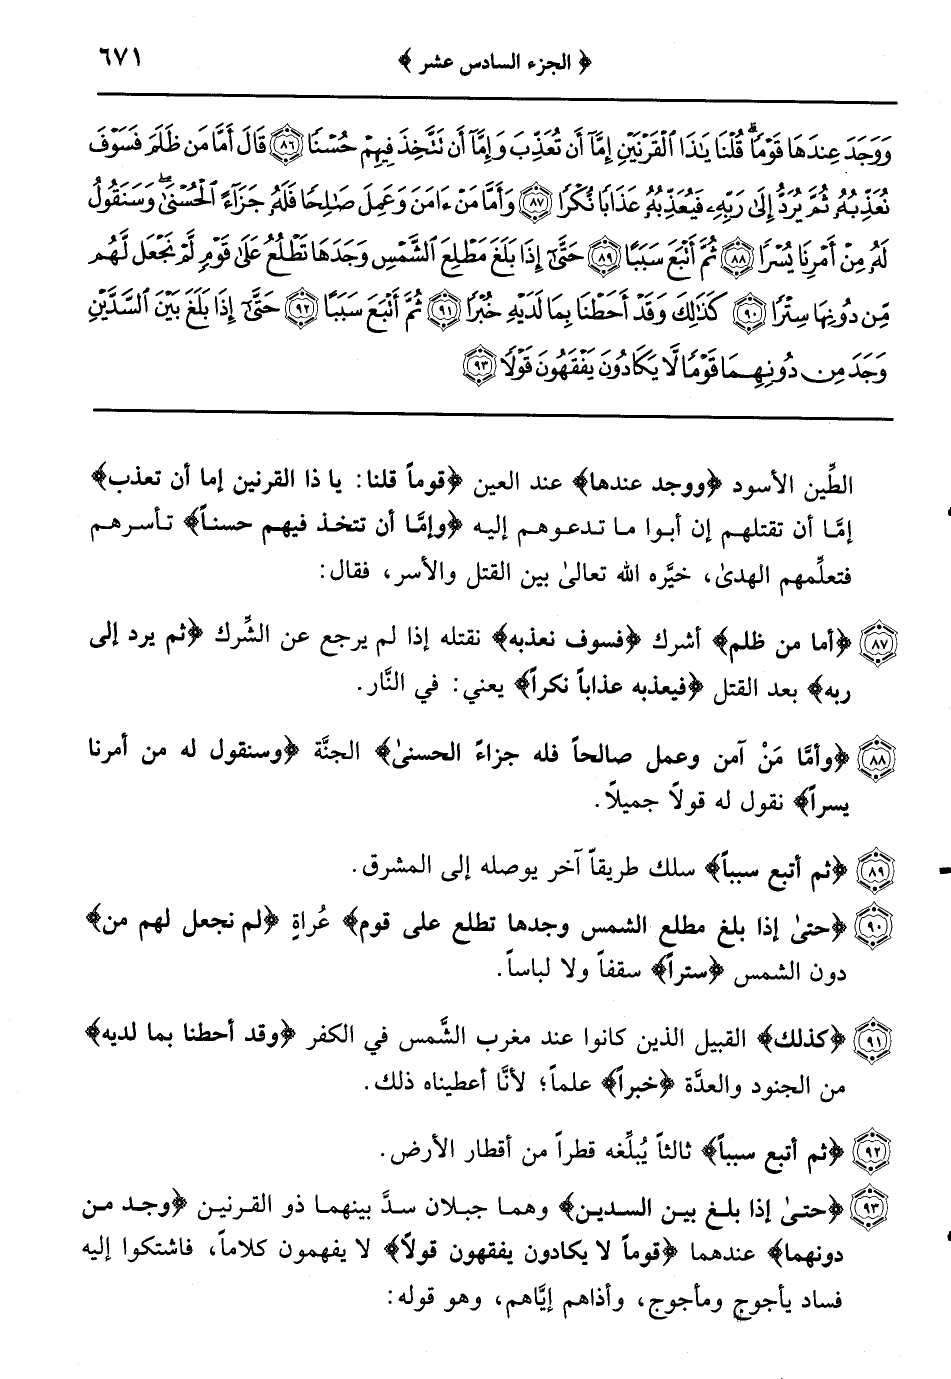 ﴿ الجزء السادس عشر ﴾ ٦٧١
وَوَجَدَ عِندَهَا قَوْمًاۗ قُلْنَا يَٰذَا ٱلْقَرْنَيْنِ إِمَّآ أَن تُعَذِّبَ وَإِمَّآ أَن تَتَّخِذَ فِيهِمْ حُسْنًا ٨٦ قَالَ أَمَّا مَن ظَلَمَ فَسَوْفَ
نُعَذِّبُهُۥ ثُمَّ يُرَدُّ إِلَىٰ رَبِّهِۦ فَيُعَذِّبُهُۥ عَذَابًا نُّكْرًا ٨٧ وَأَمَّا مَنْ ءَامَنَ وَعَمِلَ صَٰلِحًا فَلَهُۥ جَزَآءً ٱلْحُسْنَىٰۖ وَسَنَقُولُ
لَهُۥ مِنْ أَمْرِنَا يُسْرًا ٨٨ ثُمَّ أَتْبَعَ سَبَبًا ٨٩ حَتَّىٰٓ إِذَا بَلَغَ مَطْلِعَ ٱلشَّمْسِ وَجَدَهَا تَطْلُعُ عَلَىٰ قَوْمٍ لَّمْ نَجْعَل لَّهُم
مِّن دُونِهَا سِتْرًا ٩٠ كَذَٰلِكَ وَقَدْ أَحَطْنَا بِمَا لَدَيْهِ خُبْرًا ٩١ ثُمَّ أَتْبَعَ سَبَبًا ٩٢ حَتَّىٰٓ إِذَا بَلَغَ بَيْنَ ٱلسَّدَّيْنِ
وَجَدَ مِن دُونِهِمَا قَوْمًا لَّا يَكَادُونَ يَفْقَهُونَ قَوْلًا ٩٣
الطِّين الأسود ﴿ووجد عندها﴾ عند العين ﴿قوماً قلنا: يا ذا القرنين إما أن تعذب﴾
إمَّا أن تقتلهم إن أبوا ما تدعوهم إليه ﴿وإمَّا أن تتخذ فيهم حسناً﴾ تأسرهم
فتعلِّمهم الهدىٰ، خيَّره الله تعالىٰ بين القتل والأسر، فقال:
٨٧ ﴿أما من ظلم﴾ أشرك ﴿فسوف نعذبه﴾ نقتله إذا لم يرجع عن الشِّرك ﴿ثم يرد إلى
ربه﴾ بعد القتل ﴿فيعذبه عذاباً نكراً﴾ يعني: في النَّار.
٨٨ ﴿وأمَّا مَنْ آمن وعمل صالحاً فله جزاءً الحسنىٰ﴾ الجنَّة ﴿وسنقول له من أمرنا
يسراً﴾ نقول له قولاً جميلاً.
٨٩ ﴿ثم أتبع سبباً﴾ سلك طريقاً آخر يوصله إلى المشرق.
٩٠ ﴿حتىٰ إذا بلغ مطلع الشمس وجدها تطلع على قوم﴾ عُراةٍ ﴿لم نجعل لهم من﴾
دون الشمس ﴿ستراً﴾ سقفاً ولا لباساً.
٩١ ﴿كذلك﴾ القبيل الذين كانوا عند مغرب الشَّمس في الكفر ﴿وقد أحطنا بما لديه﴾
من الجنود والعدَّة ﴿خبراً﴾ علماً؛ لأنَّا أعطيناه ذلك.
٩٢ ﴿ثم أتبع سبباً﴾ ثالثاً يُبلِّغه قطراً من أقطار الأرض.
٩٣ ﴿حتىٰ إذا بلغ بين السدين﴾ وهما جبلان سدَّ بينهما ذو القرنين ﴿وجد من
دونهما﴾ عندهما ﴿قوماً لا يكادون يفقهون قولاً﴾ لا يفهمون كلاماً، فاشتكوا إليه
فساد يأجوج ومأجوج، وأذاهم إيَّاهم، وهو قوله: